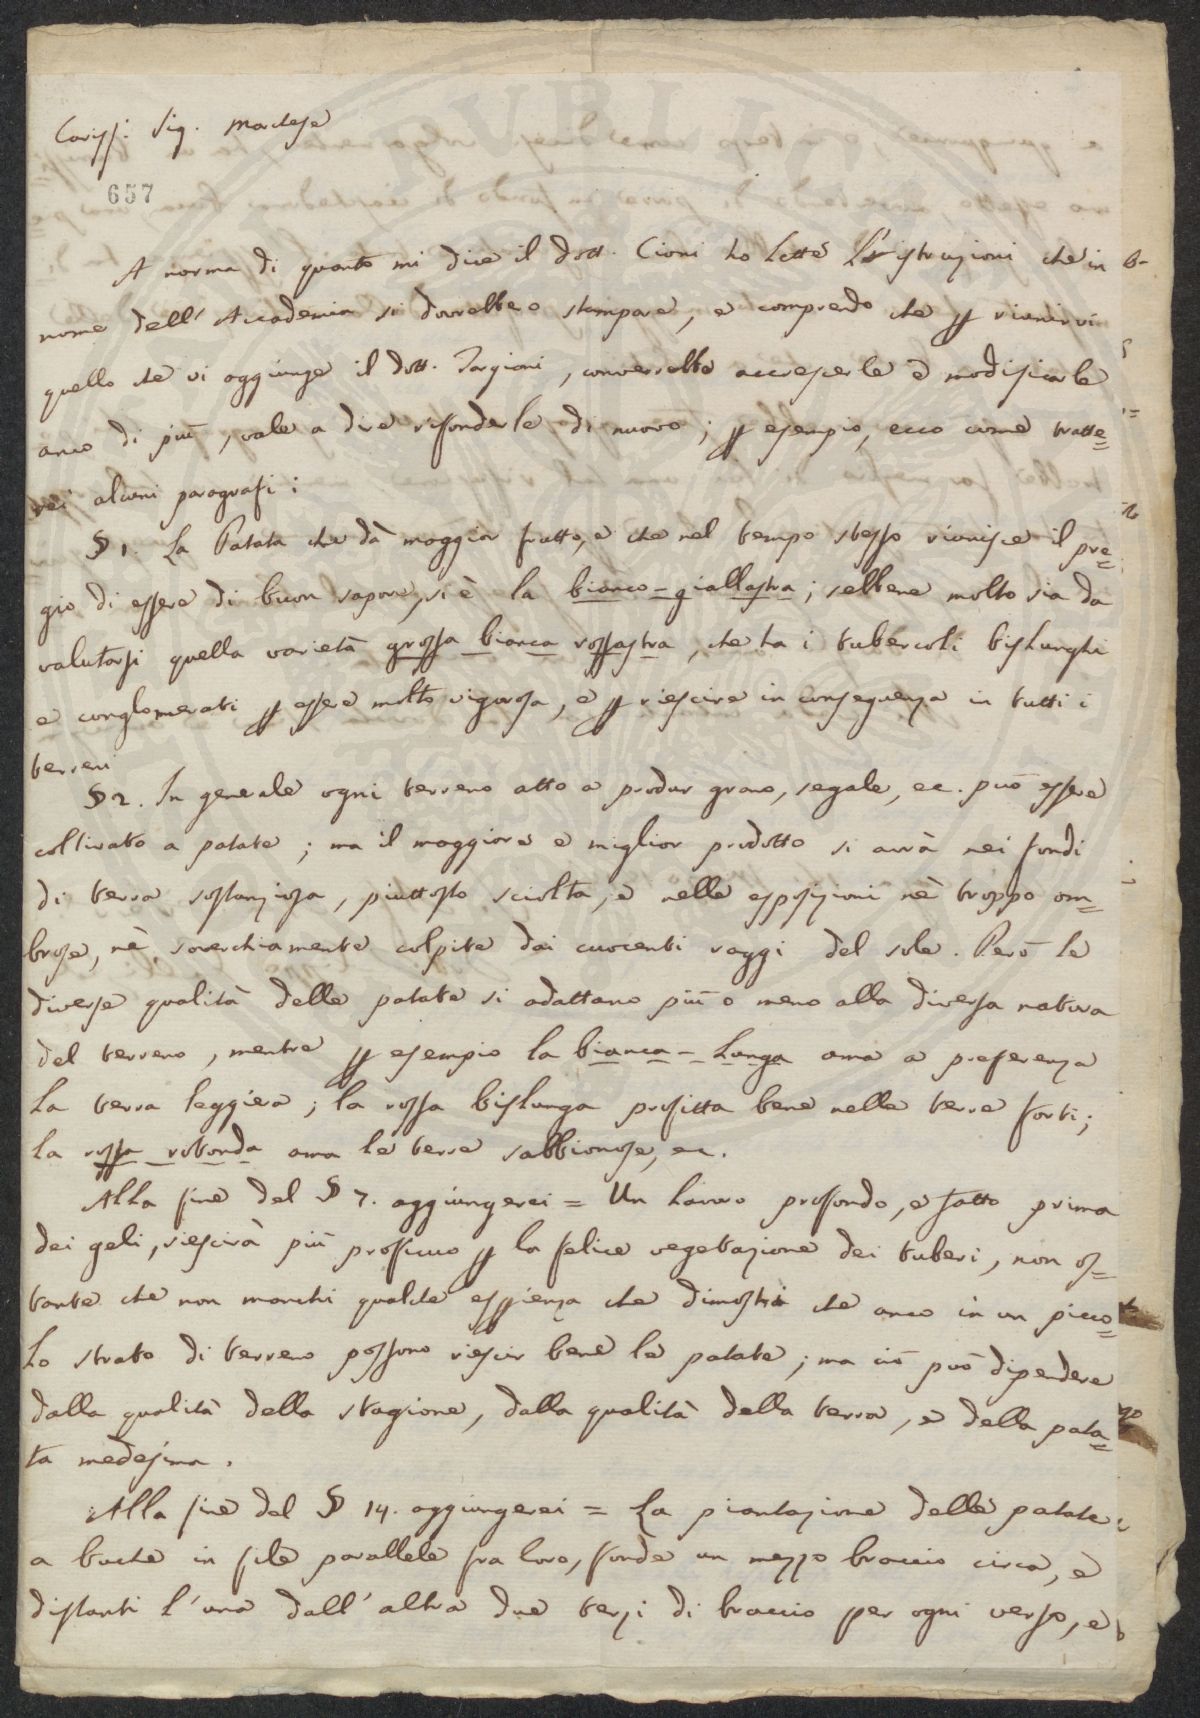 Cariss.º Sig. Marchese
657
A norma di quanto mi dice il Dott. Cioni ho Lette L'istruzioni che in
nome dell'Accademia si dovrebbero stampare, e comprendo che p riunirvi
quello che vi aggiunge il Dott. Targioni, converrebbe accrescerle e modificarle
anco di più, vale a dire rifonderle di nuovo; p esempio, ecco come tratte=
rei alcuni paragrafi:
§ 1. La Patata che dà maggior frutto, e che nel tempo stesso riunisce il pre=
gio di essere di buon sapore, si è la bianco-giallastra; sebbene molto sia da
valutarsi quella varietà grossa bianca rossastra, che ha i tubercoli bislunghi
e conglomerati p essere molto vigorosa, e p riescire in conseguenza in tutti i
terreni
§ 2. In generale ogni terreno atto a produr grano, segale, ec. può essere
coltivato a patate; ma il maggiore e miglior prodotto si avrà nei fondi
di terra sostanziosa, piuttosto sciolta, e nelle esposizioni nè troppo om=
brose, nè soverchiamente colpite dai cuocenti raggi del sole. Però le
diverse qualità delle patate si adattano più o meno alla diversa natura
del terreno, mentre p esempio la bianca-Lunga ama a preferenza
La terra leggiera; la rossa bislunga profitta bene nelle terre forti;
la rossa rotonda ama le terre sabbionose, ec.
Alla fine del § 7. aggiungerei = Un Lavoro profondo, e fatto prima
dei geli, riescirà più proficuo p la felice vegetazione dei tuberi, non os=
tante che non manchi qualche esperienza che dimostri che anco in un picco=
Lo strato di terreno possono riescir bene le patate; ma ciò può dipendere
dalla qualità della stagione, dalla qualità della terra, e della pata=
ta medesima.
Alla fine del § 14. aggiungerei = La piantazione delle patate
a buche in file parallele fra loro, fonde un mezzo braccio circa, e
distanti l'una dall'altra due terzi di braccio per ogni verso, e